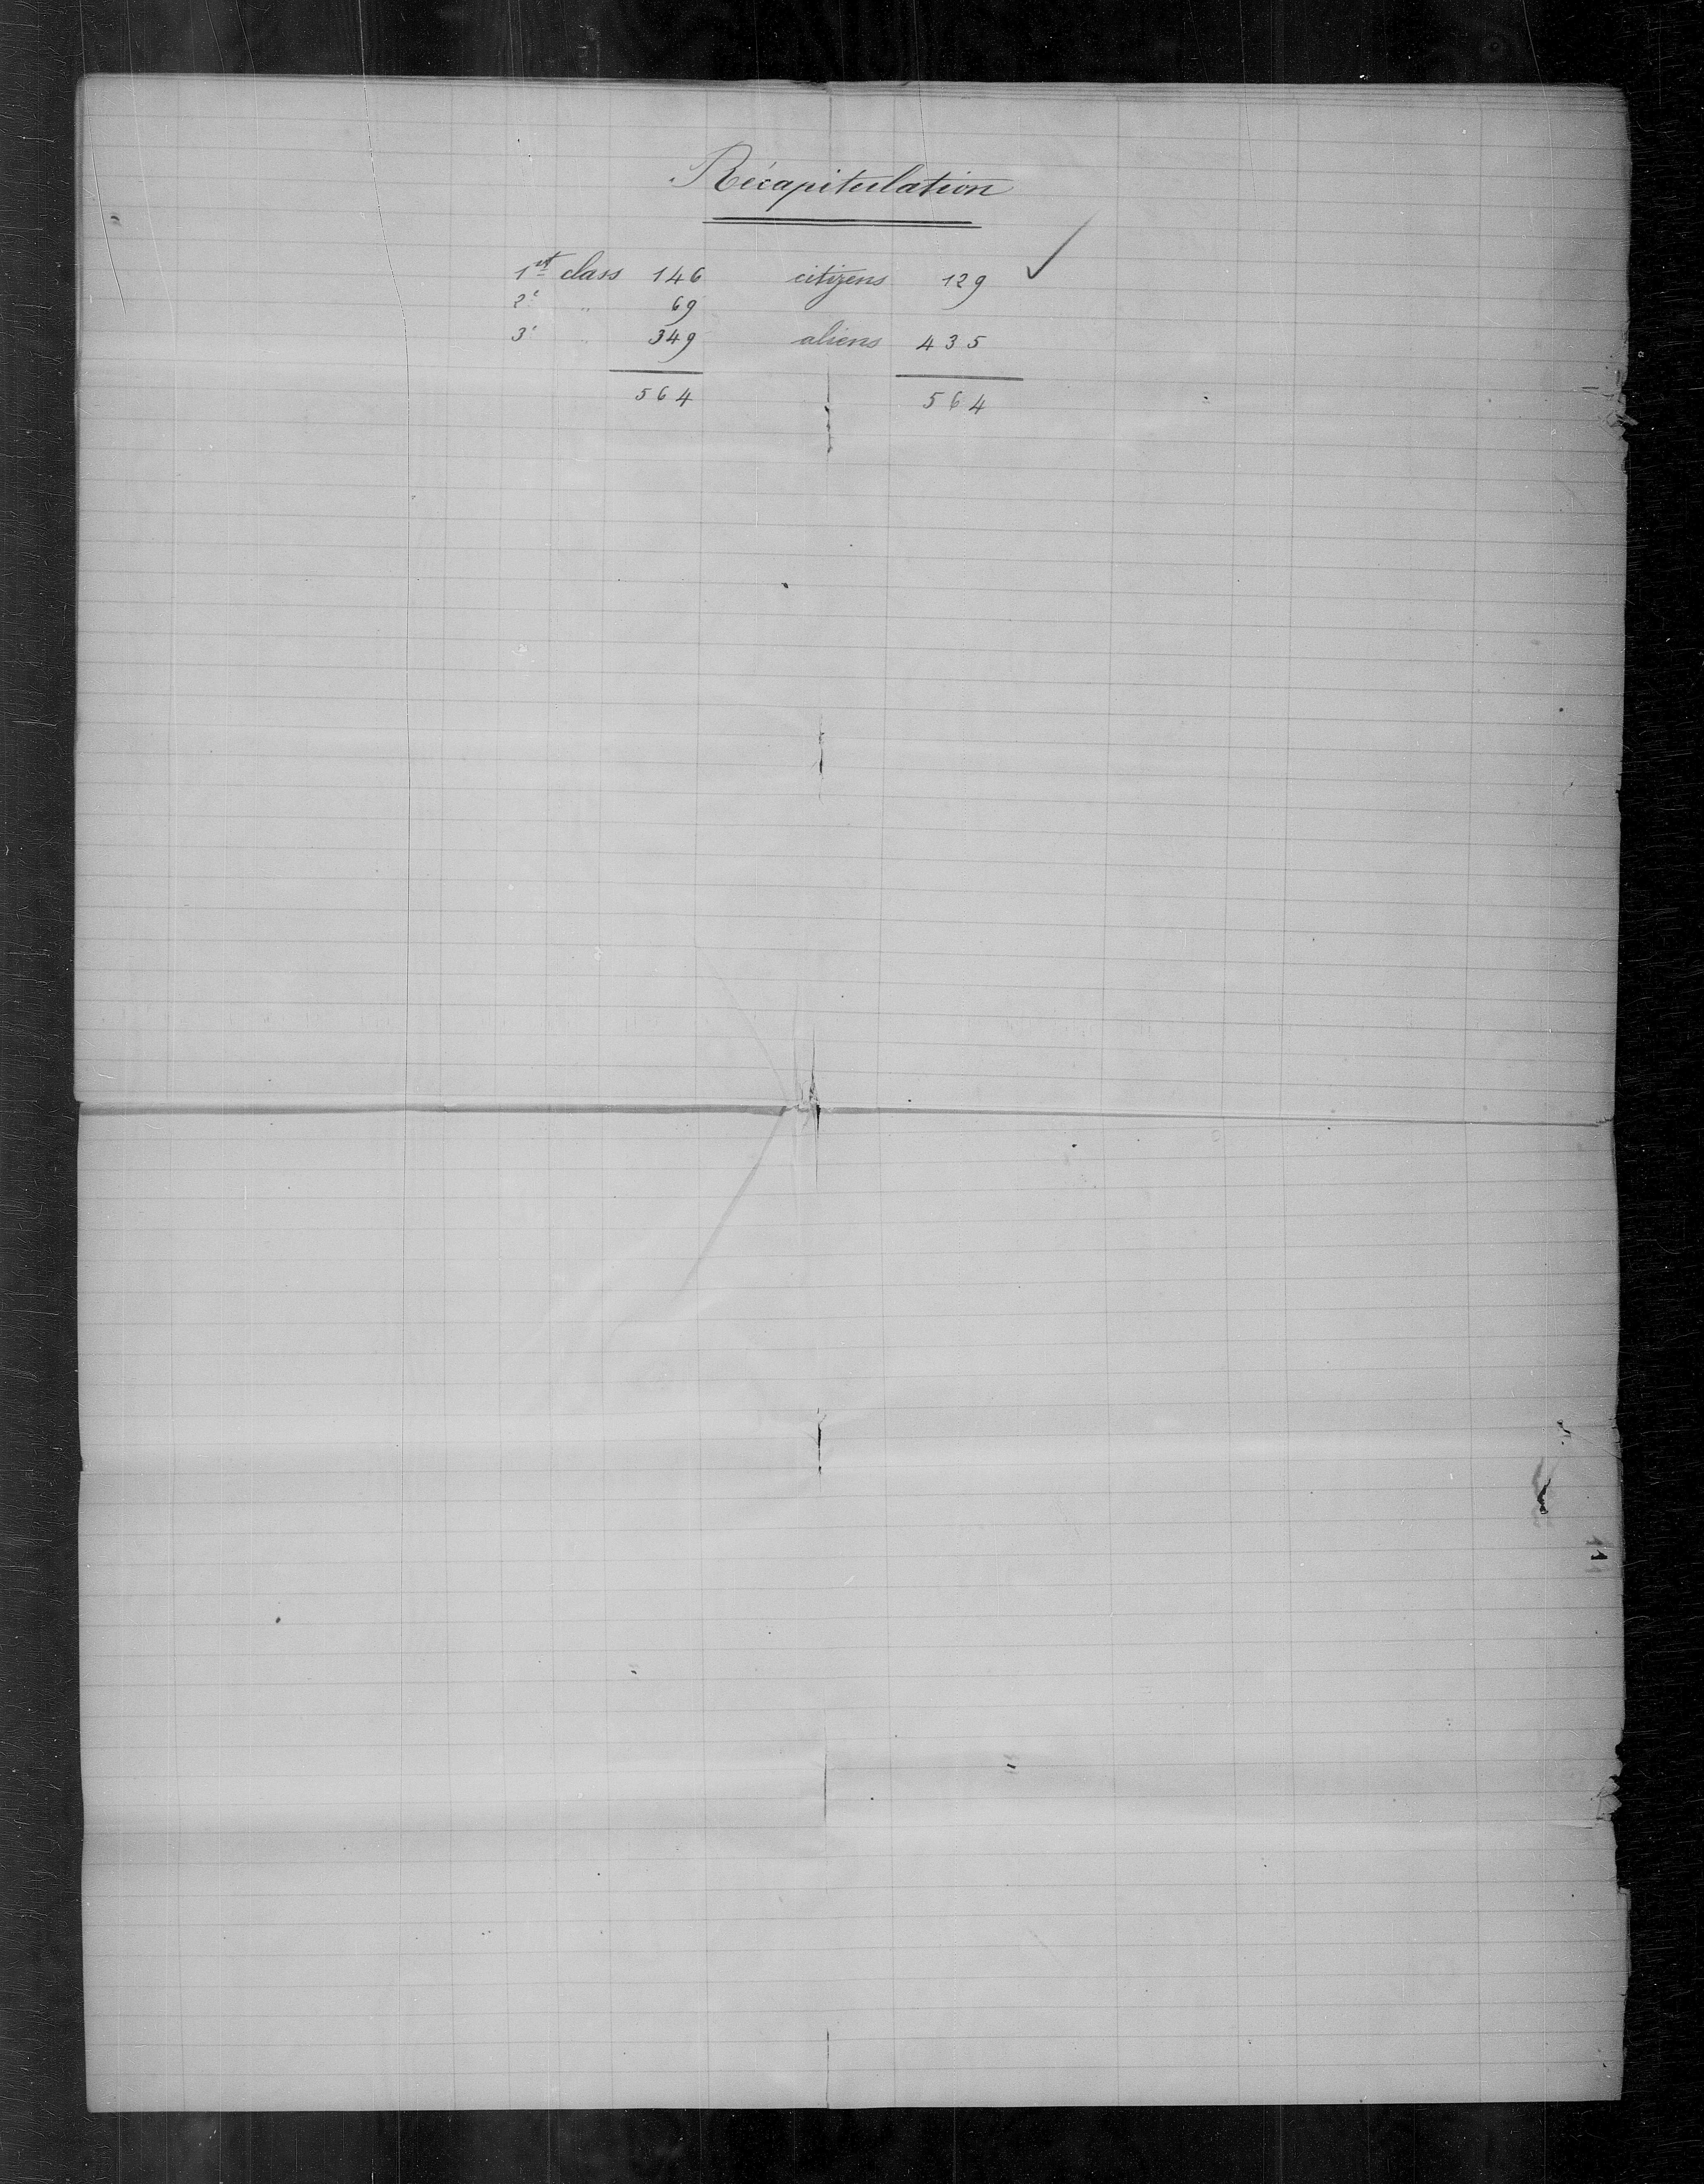 Récapitulation
1st class 146 citizens 129 ✓
2e " 69
3e " 349 aliens 435
564 564